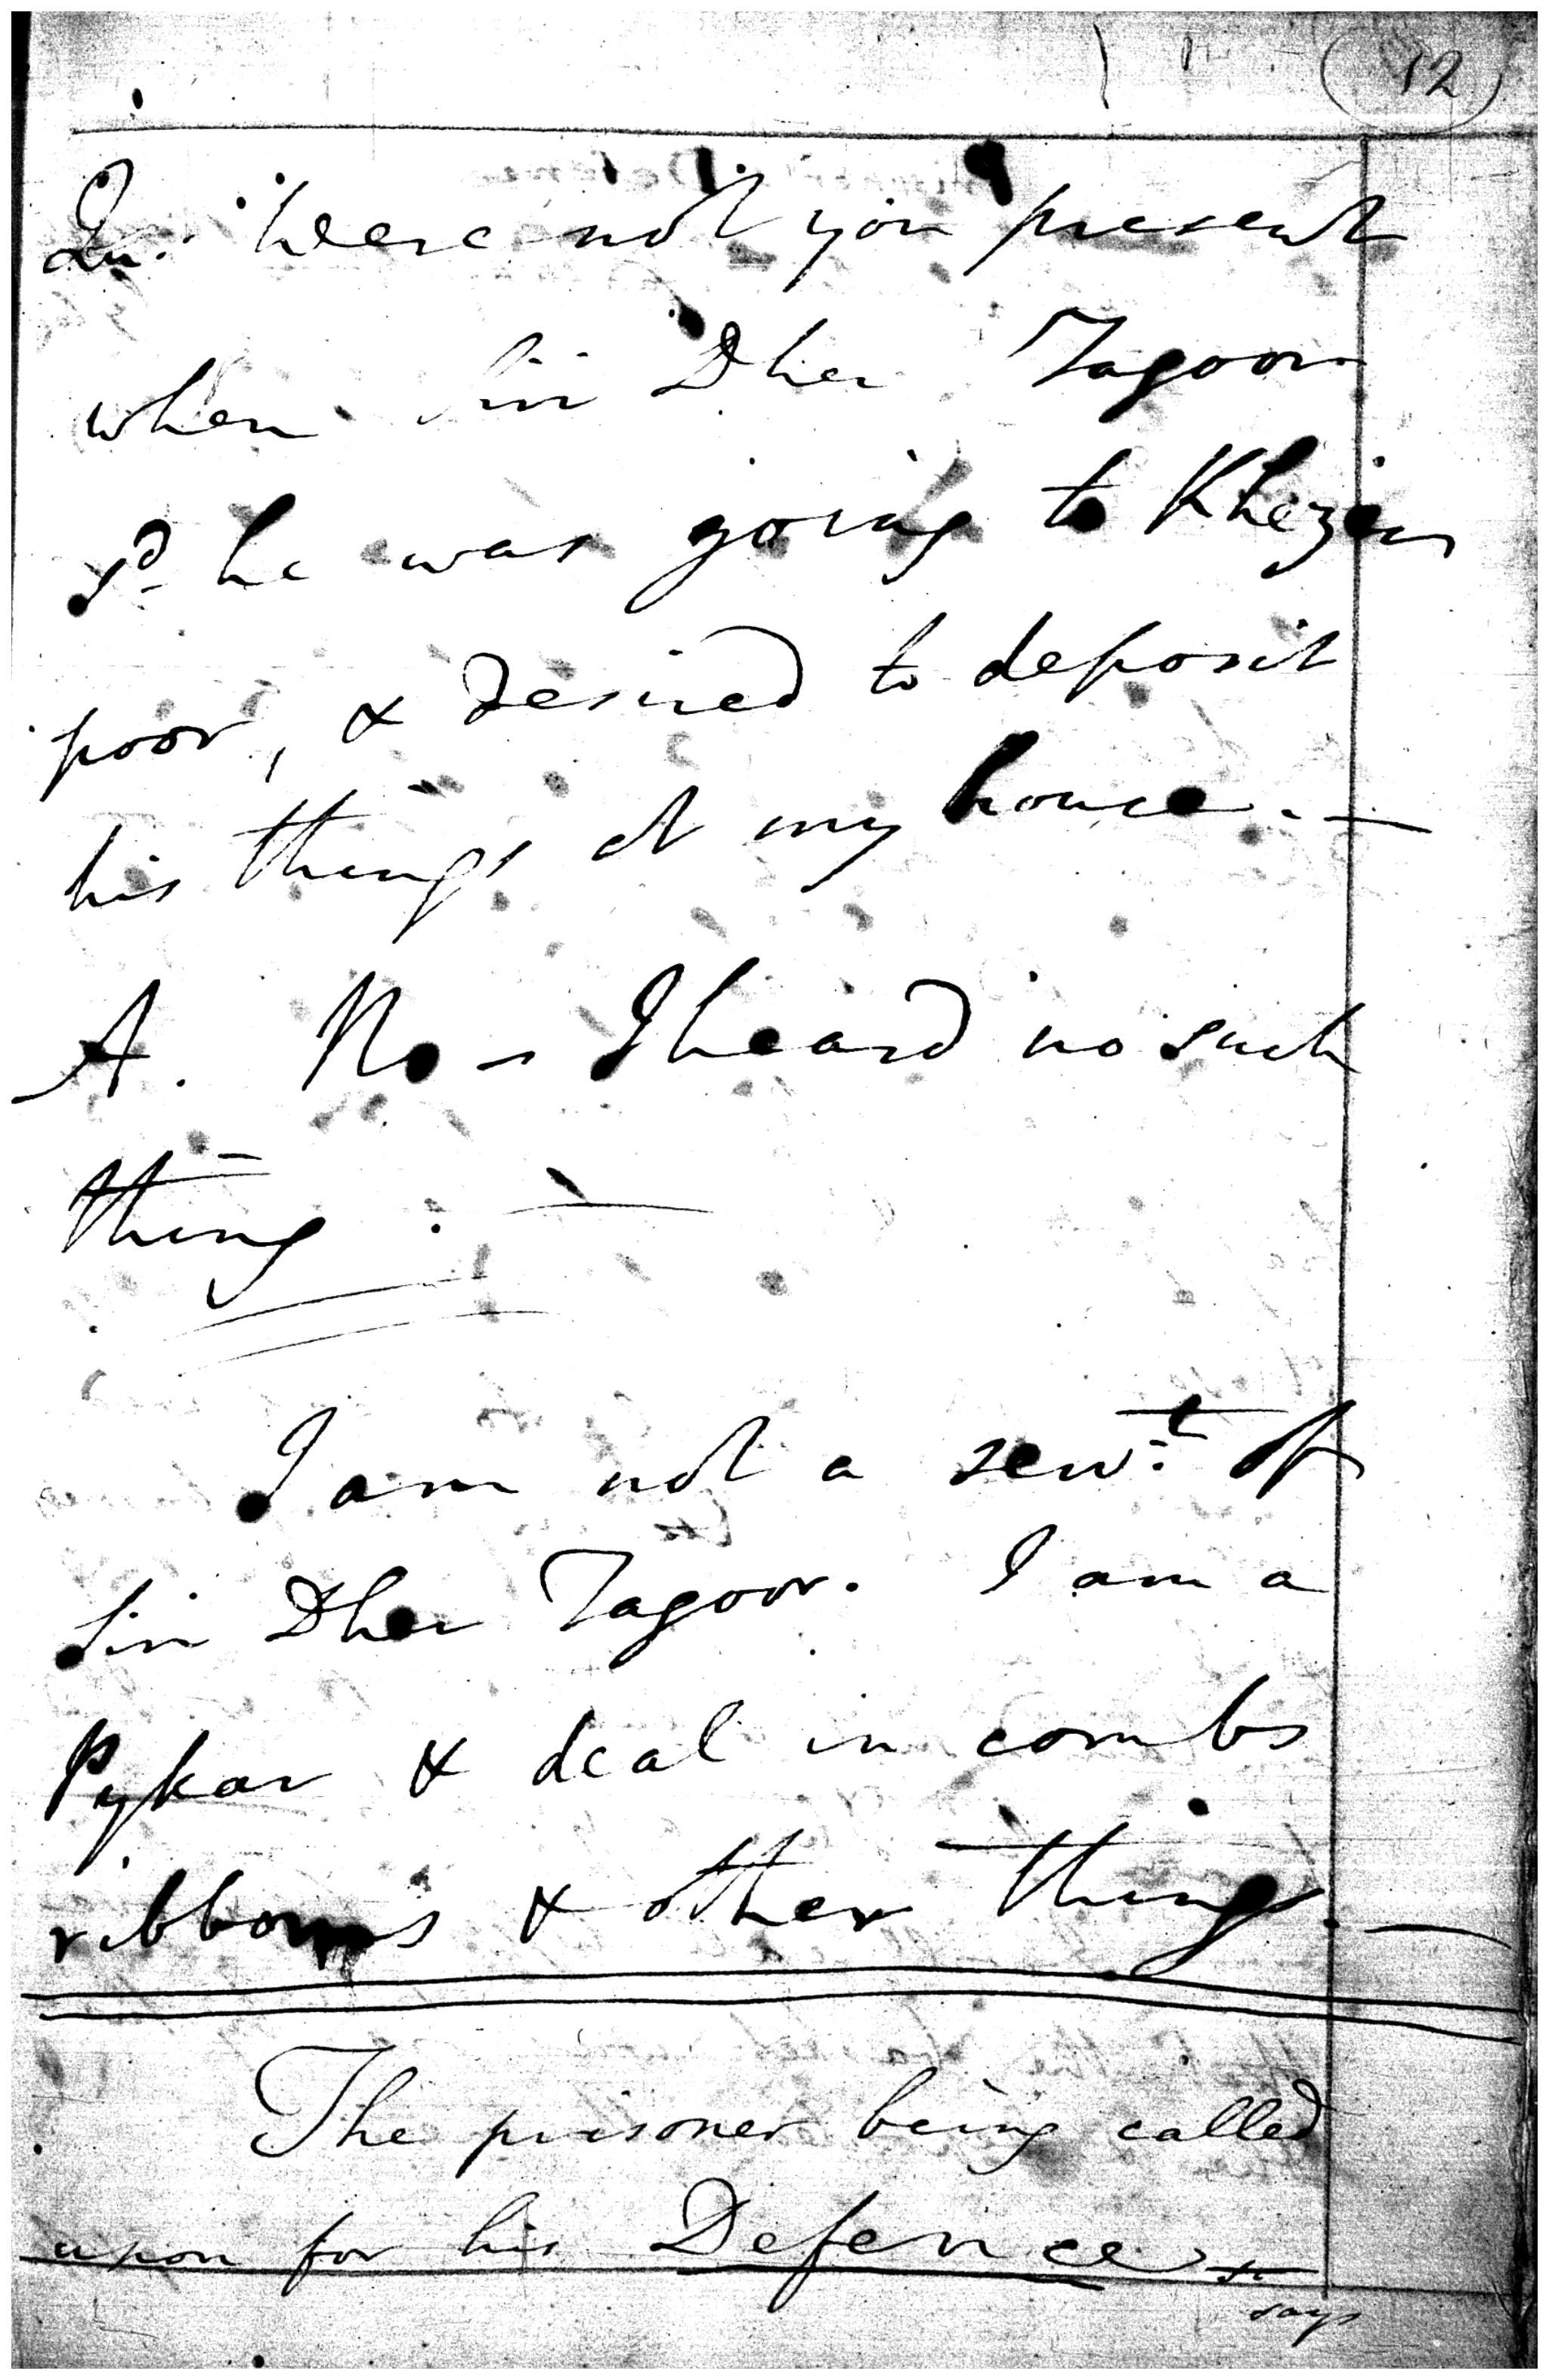 (12)
Qu. Were not you present
when Siri Dher Tagoor
sd. he was going to Khezir
poor, & desired to deposit
his things at my house. —
A. No - I heard no such
thing. —
I am not a servt. of
Siri Dher Tagoor. I am a
Pykar & deal in combs
ribbons & other things. —
The prisoner being called
upon for his Defence
says